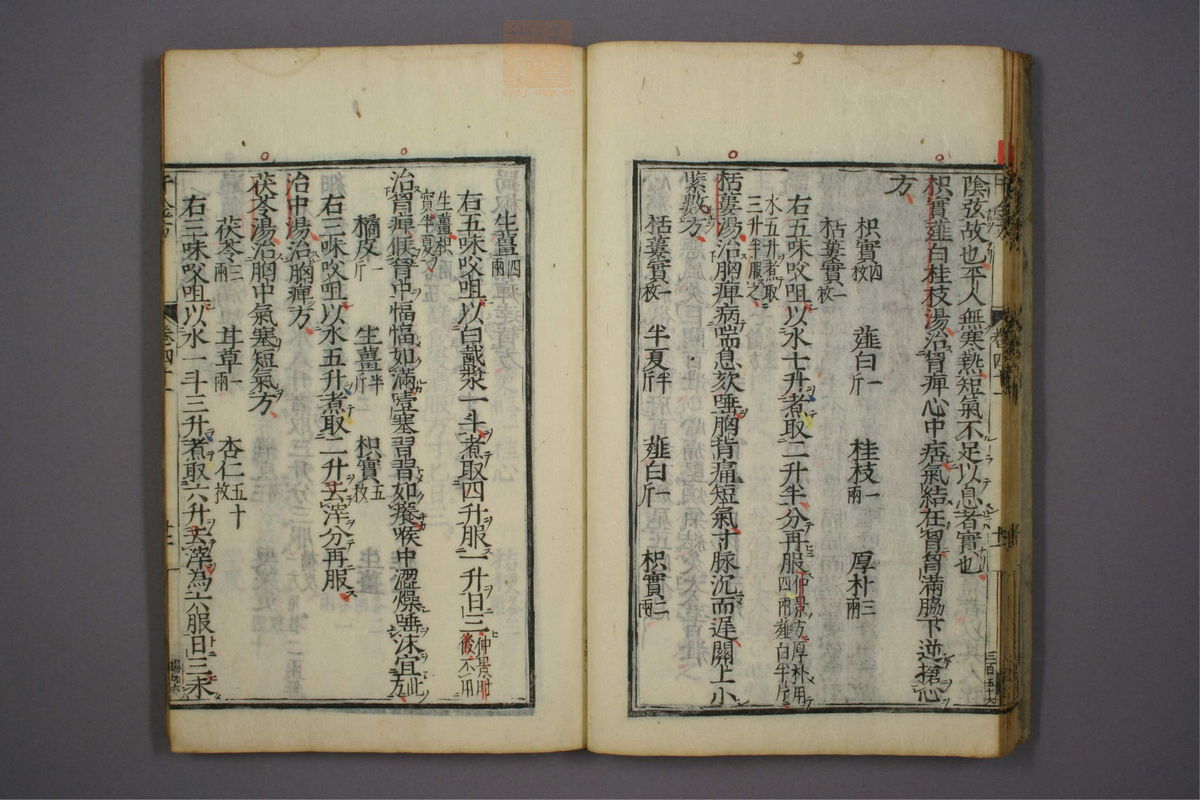 陰弦故也平人無寒熱短氣不足以息者實也
枳實薤白桂枝湯治胷痺心中痞氣結在胷胷滿脇下逆搶心
方
枳實四枚 薤白一斤 桂枝一兩 厚朴三兩
栝蔞實一枚
右五味㕮咀以水七升煮取二升半分再服仲景方厚朴用四兩薤白半斤
水五升煮取
三升半服之
栝蔞湯治胸痺病喘息欬唾胸背痛短氣寸脉沉而遲關上小
緊數方
栝蔞實一枚 半夏半斤 薤白一斤 枳實二兩
生薑四兩
右五味㕮咀以白截漿一斗煮取四升服一升日三仲景肘後不用
生薑枳
實半夏
治胷痺候胷中愊愊如滿噎塞習習如癢喉中澀燥唾沫宜此方
橘皮一斤 生薑半斤 枳實五枚
右三味㕮咀以水五升煮取二升去滓分再服
治中湯治胸痺方
茯苓湯治胸中氣塞短氣方
茯苓三兩 甘草一兩 杏仁五十枚
右三味㕮咀以水一斗三升煮取六升去滓為六服日三未
卷四十二